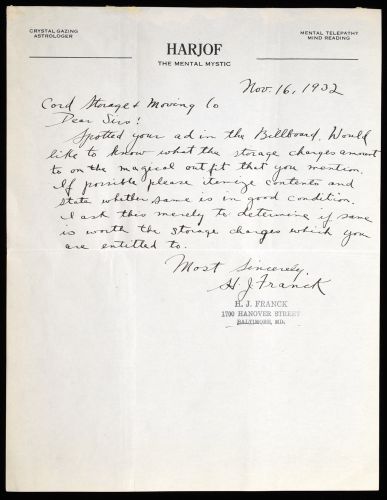 CRYSTAL GAZING
ASTROLOGER
HARJOF
THE MENTAL MYSTIC
MENTAL TELEPATHY
MIND READING
Nov. 16, 1932
Cord Storage & Moving Co
Dear Sirs:
Spotted your ad in the Billboard. Would
like to know what the storage charges amount
to on the magical outfit that you mention.
If possible please itemize contents and
state whether same is in good condition.
I ask this merely to determine if same
is worth the storage charges which you
are entitled to.
Most Sincerely,
H. J. Franck
H. J. FRANCK
1700 HANOVER STREET
BALTIMORE, MD.